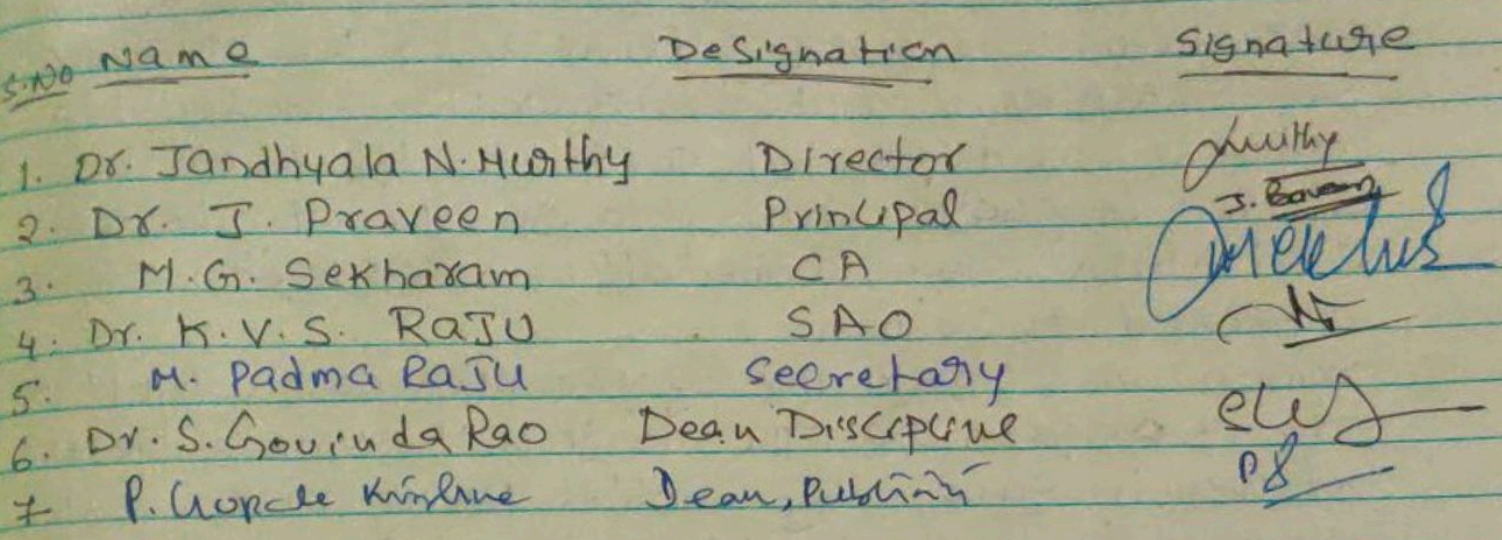 S.NO Name Designation Signature
1. Dr. Jandhyala N. Murthy Director Murthy
2. Dr. J. Praveen Principal J.
3. M.G. Sekharam CA
4. Dr. K.V.S. RAJU SAO
5. M. Padma RAJU Secretary
6. Dr. S. Govinda Rao Dean Discipline
7 P. Gopala Krishna Dean,